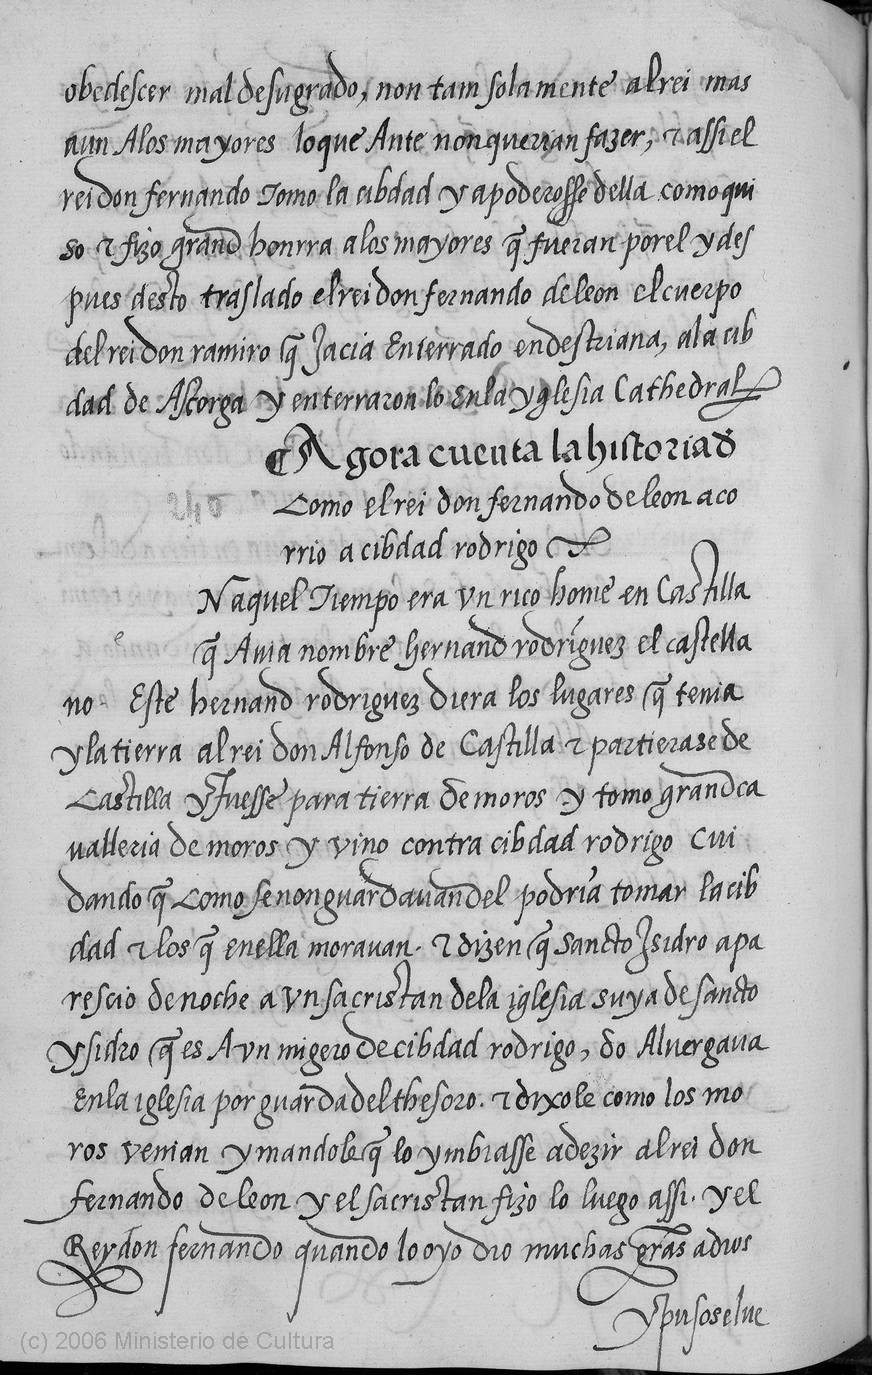 obedescer mal de su grado, non tam solamente al rei mas
aun Alos mayores lo que Ante non querian fazer, & assi el
rei don fernando Tomo la cibdad y apoderosse della como qui
so & fizo grand honrra alos mayores q̃ fueran por el y des
pues desto traslado el rei don fernando de leon el cuerpo
del rei don ramiro q̃ Jacia Enterrado en destriana, ala cib
dad de Astorga y enterraron lo Enla yglesia Cathedral
¶ Agora cuenta la historia d
Como el rei don fernando de leon aco
rrio a cibdad rodrigo
N aquel Tiempo era vn rico home en Castilla
e
q̃ Auia nombre hernand rodríguez el castella
no Este hernand rodriguez diera los lugares q̃ tenia
y la tierra al rei don Alfonso de Castilla & partierase de
Castilla y fuesse para tierra de moros y tomo grand ca
valleria de moros y vino contra cibdad rodrigo Cui
dando q̃ Como se non guardauan del podria tomar la cib
dad & los q̃ en ella moravan. & dizen q̃ sancto Jsidro apa
rescio de noche a vn sacristan dela iglesia suya de sancto
ysidro q̃ es A vn migero de cibdad rodrigo, do Alvergaua
Enla iglesia por guarda del thesoro. & dixole como los mo
ros venian y mandole q̃ lo ymbiasse a dezir al rei don
fernando de leon y el sacristan fizo lo luego assi. y el
Rey don fernando quando lo oyo dio muchas gr̃as a dios
y puso se lue
(c) 2006 Ministerio de Cultura